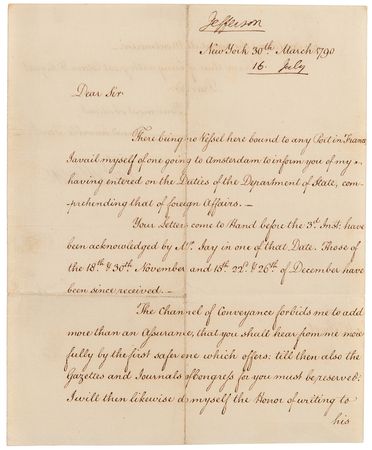 Jefferson
New York 30th March 1790
16. July
Dear Sir
There being no Vessel here bound to any Port in France,
I avail myself of one going to Amsterdam to inform you of my
having entered on the Duties of the Department of State, com-
prehending that of foreign Affairs. —
Your Letters come to Hand before the 3d. Inst: have
been acknowledged by Mr. Jay in one of that Date. Those of
the 18th & 30th November and 15th 22d. & 26th of December have
been since received. —
The Channel of Conveyance forbids me to add
more than an Assurance, that you shall hear from me more
fully by the first safer one which offers: till then also the
Gazettes and Journals of Congress for you must be reserved:
I will then likewise do myself the Honor of writing to
his